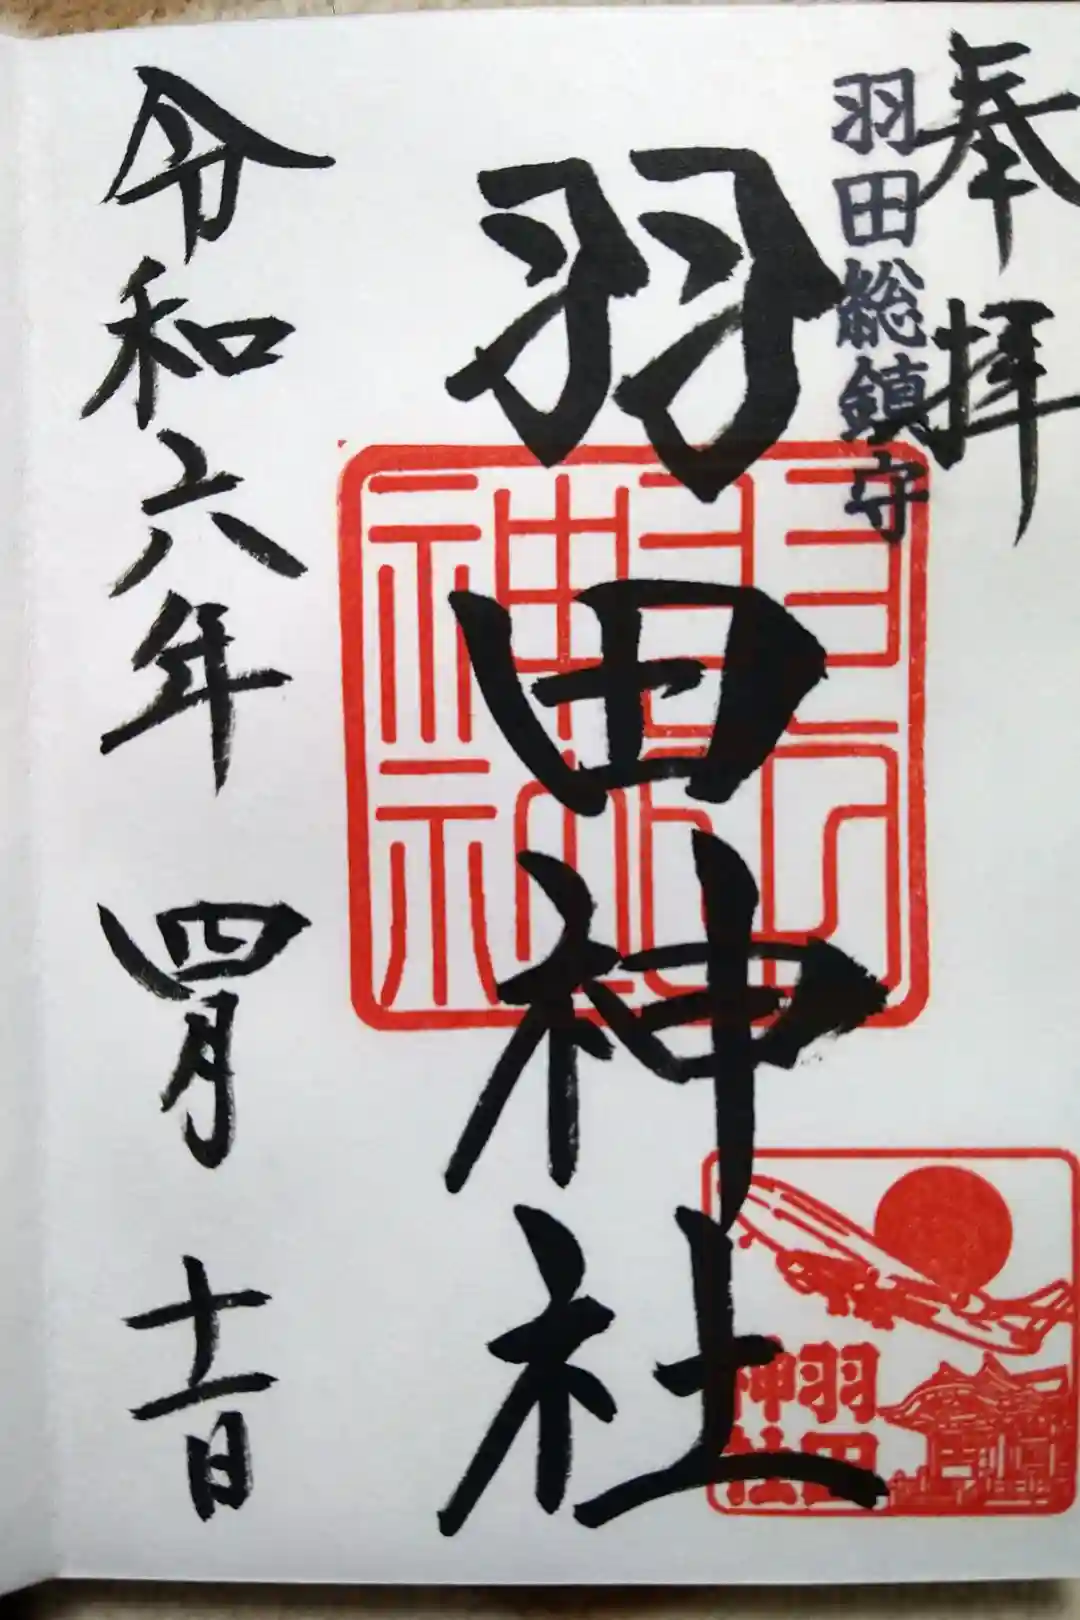 奉拝
羽田総鎮守
羽田神社
羽田
神社
羽田
神社
令和六年四月十一日